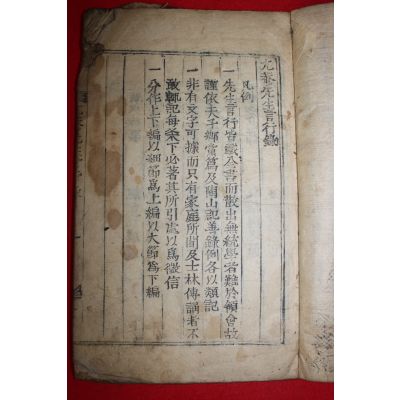 先生言行錄
凡例
一先生言行皆散出而散出無統學者難於領會故
謹依夫子鄉黨篇及陶山記善錄例各以類記
一非有文字可據而只有家庭所聞及士林傳誦者不
敢輒記每条下必著其所引處以爲徵信
一分作上下編以細節爲上編以大節爲下編